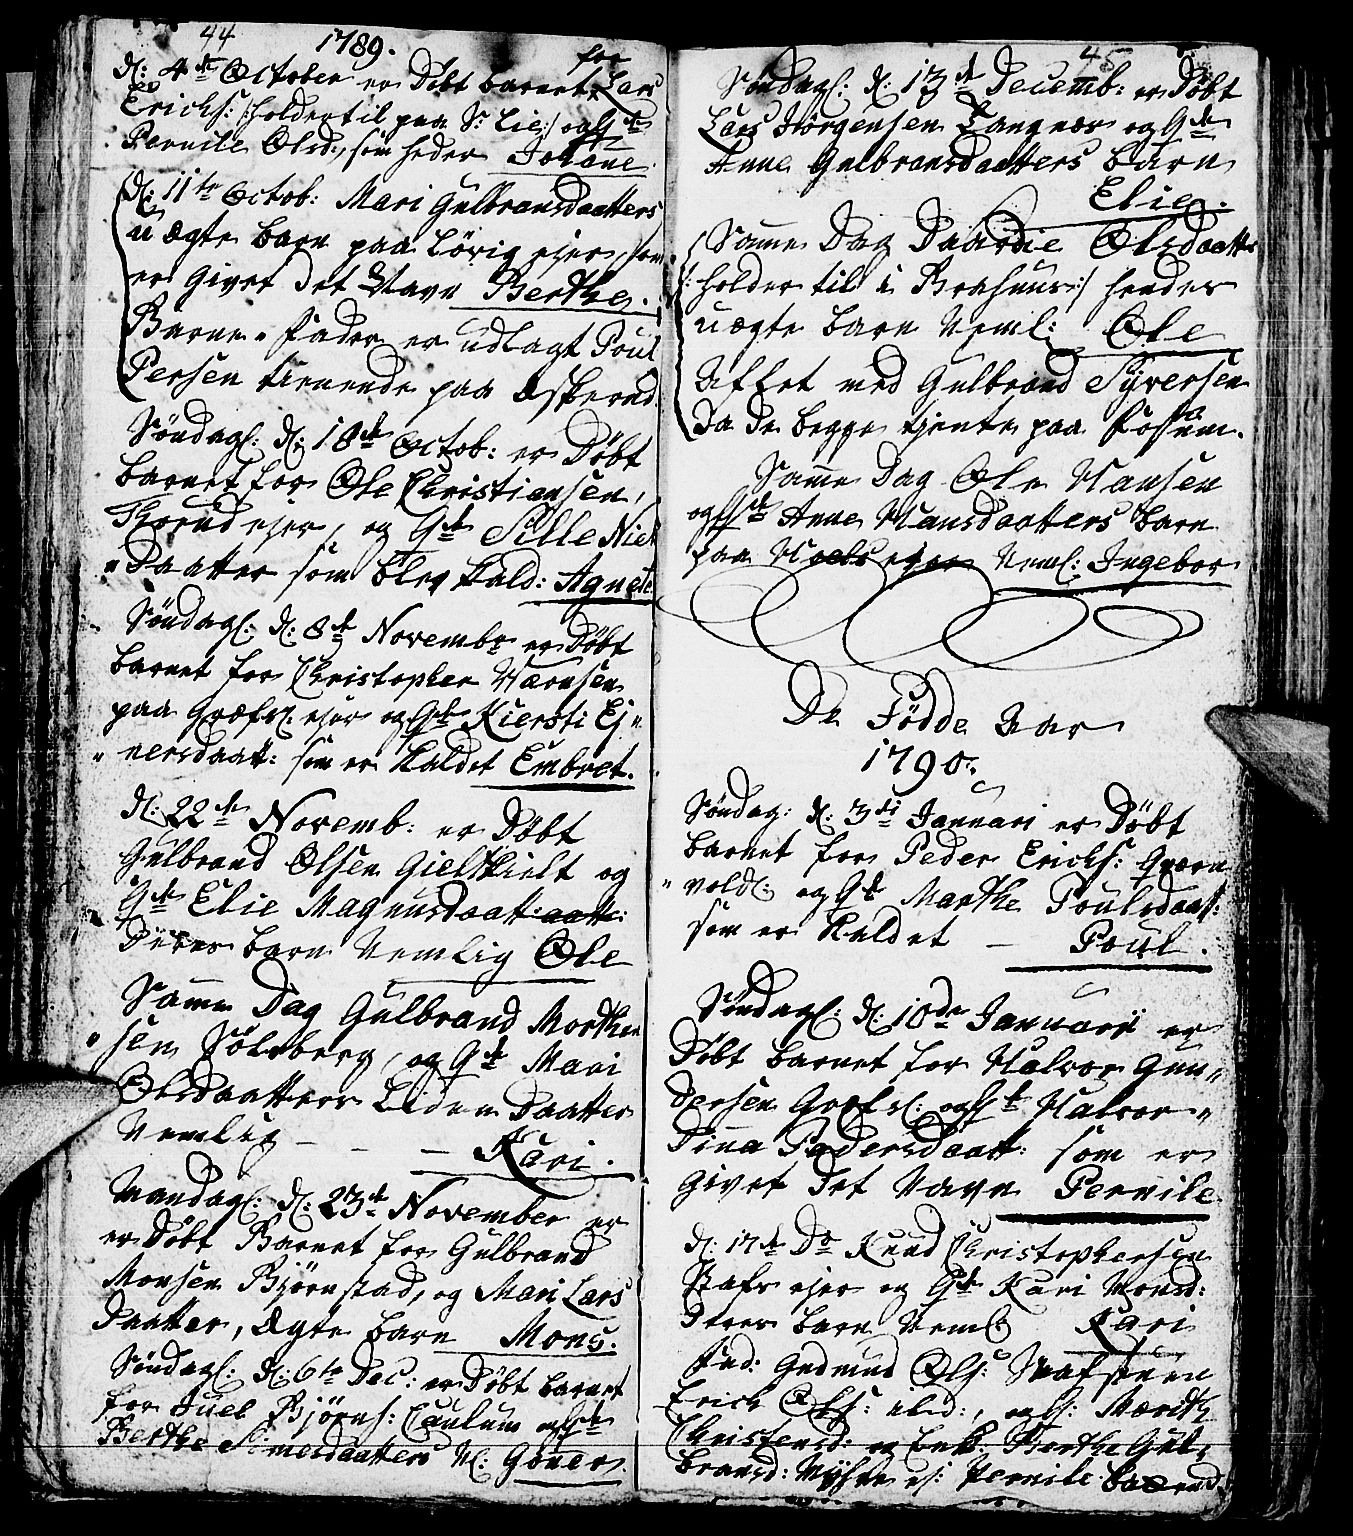 44
1789.
d: 4de October er Döbt barnet for Lars
Erichs: /:holder til paa Sr Lie:/ og Gde
Pernile Olsd:, som heder Johane
d: 11te Octob: Mari Gulbransdaatters
u ægte barn paa Lövig ejer, som
er givet det Navn Berthe.
Barne-fader er udlagt Poul
Persen tienende paa Æskerud
Söndag: d: 18de Octob: er Döbt
barnet for Ole Christiansen,
Thorud ejer, og Gde Sille Niel
"Daatter som blev kald: Agnete
Söndag: d: 8de Novembr er Döbt
barnet for Christopher Hærnsen
paa Græfs: ejer og Gde Kiersti Ej"
"nersdaatt: som er kaldet Embret.
d: 22de Novemb: er Döbt
Gulbrand Olsen Gielskielt og
Gde Elie Magnusdaatt: aatt:
Deres barn Nemlig Ole
Samme Dag Gulbrand Morthen
"sen Sölvberg, og Gde Mari
Olsdaatters Liden Daatter
Nemlig — — Kari.
Mandag: d: 23de November er
er Döbt Barnet for Gulbrand
Monsen Björnstad, og Mari Lars
Daatter, Ægte barn Mons.
Söndag: d: 6te Dec: er Döbt barnet
for Juel Björns: Caulum og Gde
Berthe Simersdaatters N: Goner.
45
Söndag: d: 13de Decemb: er Döbt
Lars Jörgensen Langnæs og Gde
Anne Gulbransdaatters barn
Elie.
Samme Dag Daardie Olsdaatt
/:holder til i Brahuus:/ hendes
uægte barn Neml: Ole
Aflet med Gulbrand Syversen
da de begge tjente paa Fossum.
Samme Dag Ole Hansen
og Gde Anne Hansdaatters barn
paa Hoels ejer Neml: Ingebor
De Födde Aar
1790.
Söndag: d: 3di Januari er Döbt
barnet for Peder Erichs: Qværn
"vold: og Gde Marthe Poulsdaat:
som er kaldet — Poul.
Söndag: d: 10de Januarii er
Döbt barnet for Halvor Gun"
dersen Græfs: og Gde Halvor"
Dina Pedersdaatt: som er
givet det Navn Pernile
d: 17de Do Knud Christophersen
Stafs ejer og Gde Kari Monsd:
Deres barn Neml: Kari
Fad: Gudmund Ols: Stafsteen
Erich Ols: ibid:, og: Marith
Christensd: og Enk: Berthe Gul"
bransd: ej: Pernile